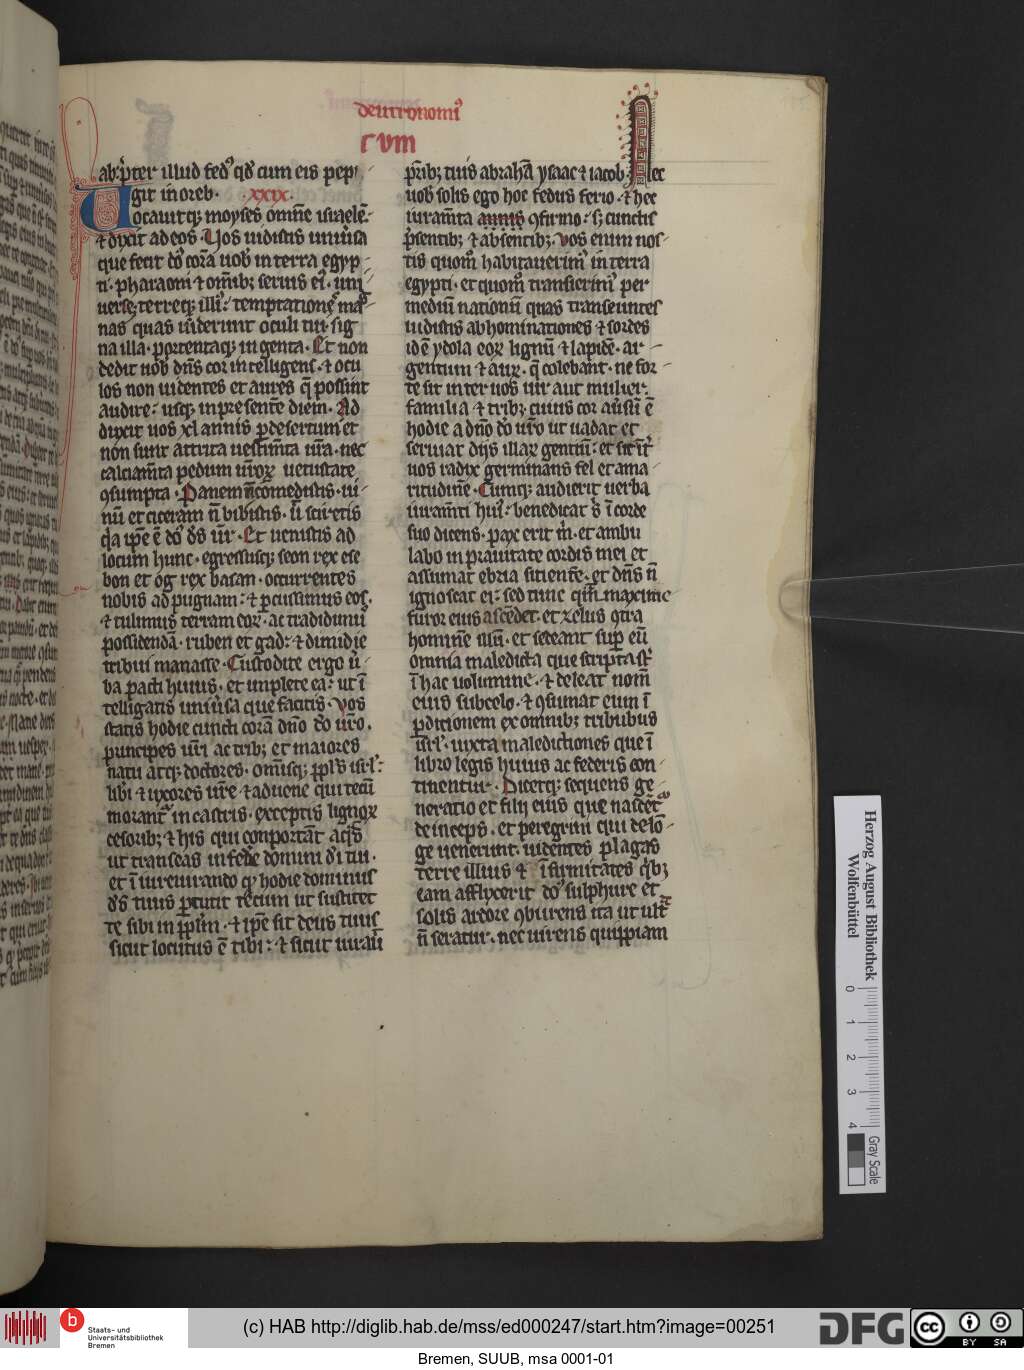 deutronomiꝰ
cvm
ab· p̄ter illud fedꝰ qđ cum eis pepi
git in oreb· xxix·
Vocauitq; moyses omnē israelē·
⁊ dixit ad eos· Vos uidistis uniūsa
que fecit dꝰ corā uob in terra egyp
ti· pharaoni ⁊ omib; seruis eiꝰ· uni
uerse; terreq; illiꝰ· temptationes mag
nas quas uiderunt oculi tui· sig
na illa· portentaq; ingenta· Et non
dedit uob dn̄s cor intelligens· ⁊ ocu
los non uidentes et aures q̄ possint
audire· usq; in presentē diem· Ad
duxit uos xl annis p desertum et
non sunt attrita uestimta urā· nec
calciamta pedum uroꝝ uetustate
ꝯsumpta· Panem n̄ comedistis· ui
nū et ciceram n̄ bibistis· ū sciretis
qa ipe ē dꝰ ds ur̄· Et uenistis ad
locum hunc· egressusq; seon rex ese
bon et og rex basan· occurrentes
nobis ad pugnam· ⁊ pcussimus eos·
⁊ tulimus terram eoꝝ· ac tradidimꝰ
possidendā· ruben et gad· ⁊ dimidie
tribui manasse· Custodite ergo ū
ba pacti huius· et implete ea· ut ī
telligatis uniūsa que facitis· Vos
statis hodie cuncti corā dn̄o do urō·
principes uri ac trib; et maiores
natu atq; doctores· omisq; ppl's isrl·
libi ⁊ uxores ure ⁊ aduene qui tecū
morant̄ in castris· exceptis lignoꝝ
cesorib; ⁊ his qui conportāt aqs
ut transeas in fedē domini di tui·
et ī iureiurando qꝰ hodie dominus
ds tuus pcutit tecum ut suscitet
te sibi in pplm̄· ⁊ ipe sit deus tuus
sicut locutus ē tibi· ⁊ sicut iurauī
p̄rib; tuis abrahā ysaac ⁊ iacob· Nec
uob solis ego hoc fedus ferio· ⁊ hec
iuramta annis ꝯfirmo· s; cunctis
p̄sentib; ⁊ absentib; Vos enim nos
tis quom̄ habitauerimꝰ in terra
egypti· et quom̄ transierimꝰ per
mediū nationū quas transeuntes
uidistis abhominationes ⁊ sordes
id ē ydola eoꝝ lignū ⁊ lapidē· ar
gentum ⁊ auꝝ· q̄ colebant· ne for
te sit inter uos uir aut mulier·
familia ⁊ trib; cuius cor aūsū ē
hodie a dn̄o dō urō ut uadat et
seruiat dijs illaꝝ gentiū· et sit īt
uos radix germinans fel et ama
ritudinē· Cumq; audierit uerba
iuramti huiꝰ· benedicat s̄ ī corde
suo dicens· pax erit m̄· et ambu
labo in prauitate cordis mei et
assumat ebria sitientē· et dn̄s n̄
ignoscat ei· sed tunc qm̄ maxime
furor eius ascedet· et zelus ꝯtra
hominē illū· et sedeant sup eū
omnia maledicta que scripta st̄
ī hac uolumine· ⁊ deleat nom̄
eius sub celo· ⁊ ꝯsumat eum ī
pditionem ex omnib; tribubus
isrl· iuxta maledictiones que ī
libro legis huius ac federis con
tinentur· Dicetq; sequens ge
neratio et filij eius que nascēt
deinceps· et peregrini qui de lō
ge uenerunt· uidentes plagas
terre illius ⁊ īfirmitates qb;
eam afflyxerit dꝰ sulphure et
solis ardore ꝯburens ita ut ult̄
n̄ seratur· nec uirens quippiam
Herzog August Bibliothek
Wolfenbüttel
0 1 2 3 4
Gray Scale
b Staats- und
Universitätsbibliothek
Bremen
(c) HAB http://diglib.hab.de/mss/ed000247/start.htm?image=00251
DFG
cc BY SA
Bremen, SUUB, msa 0001-01